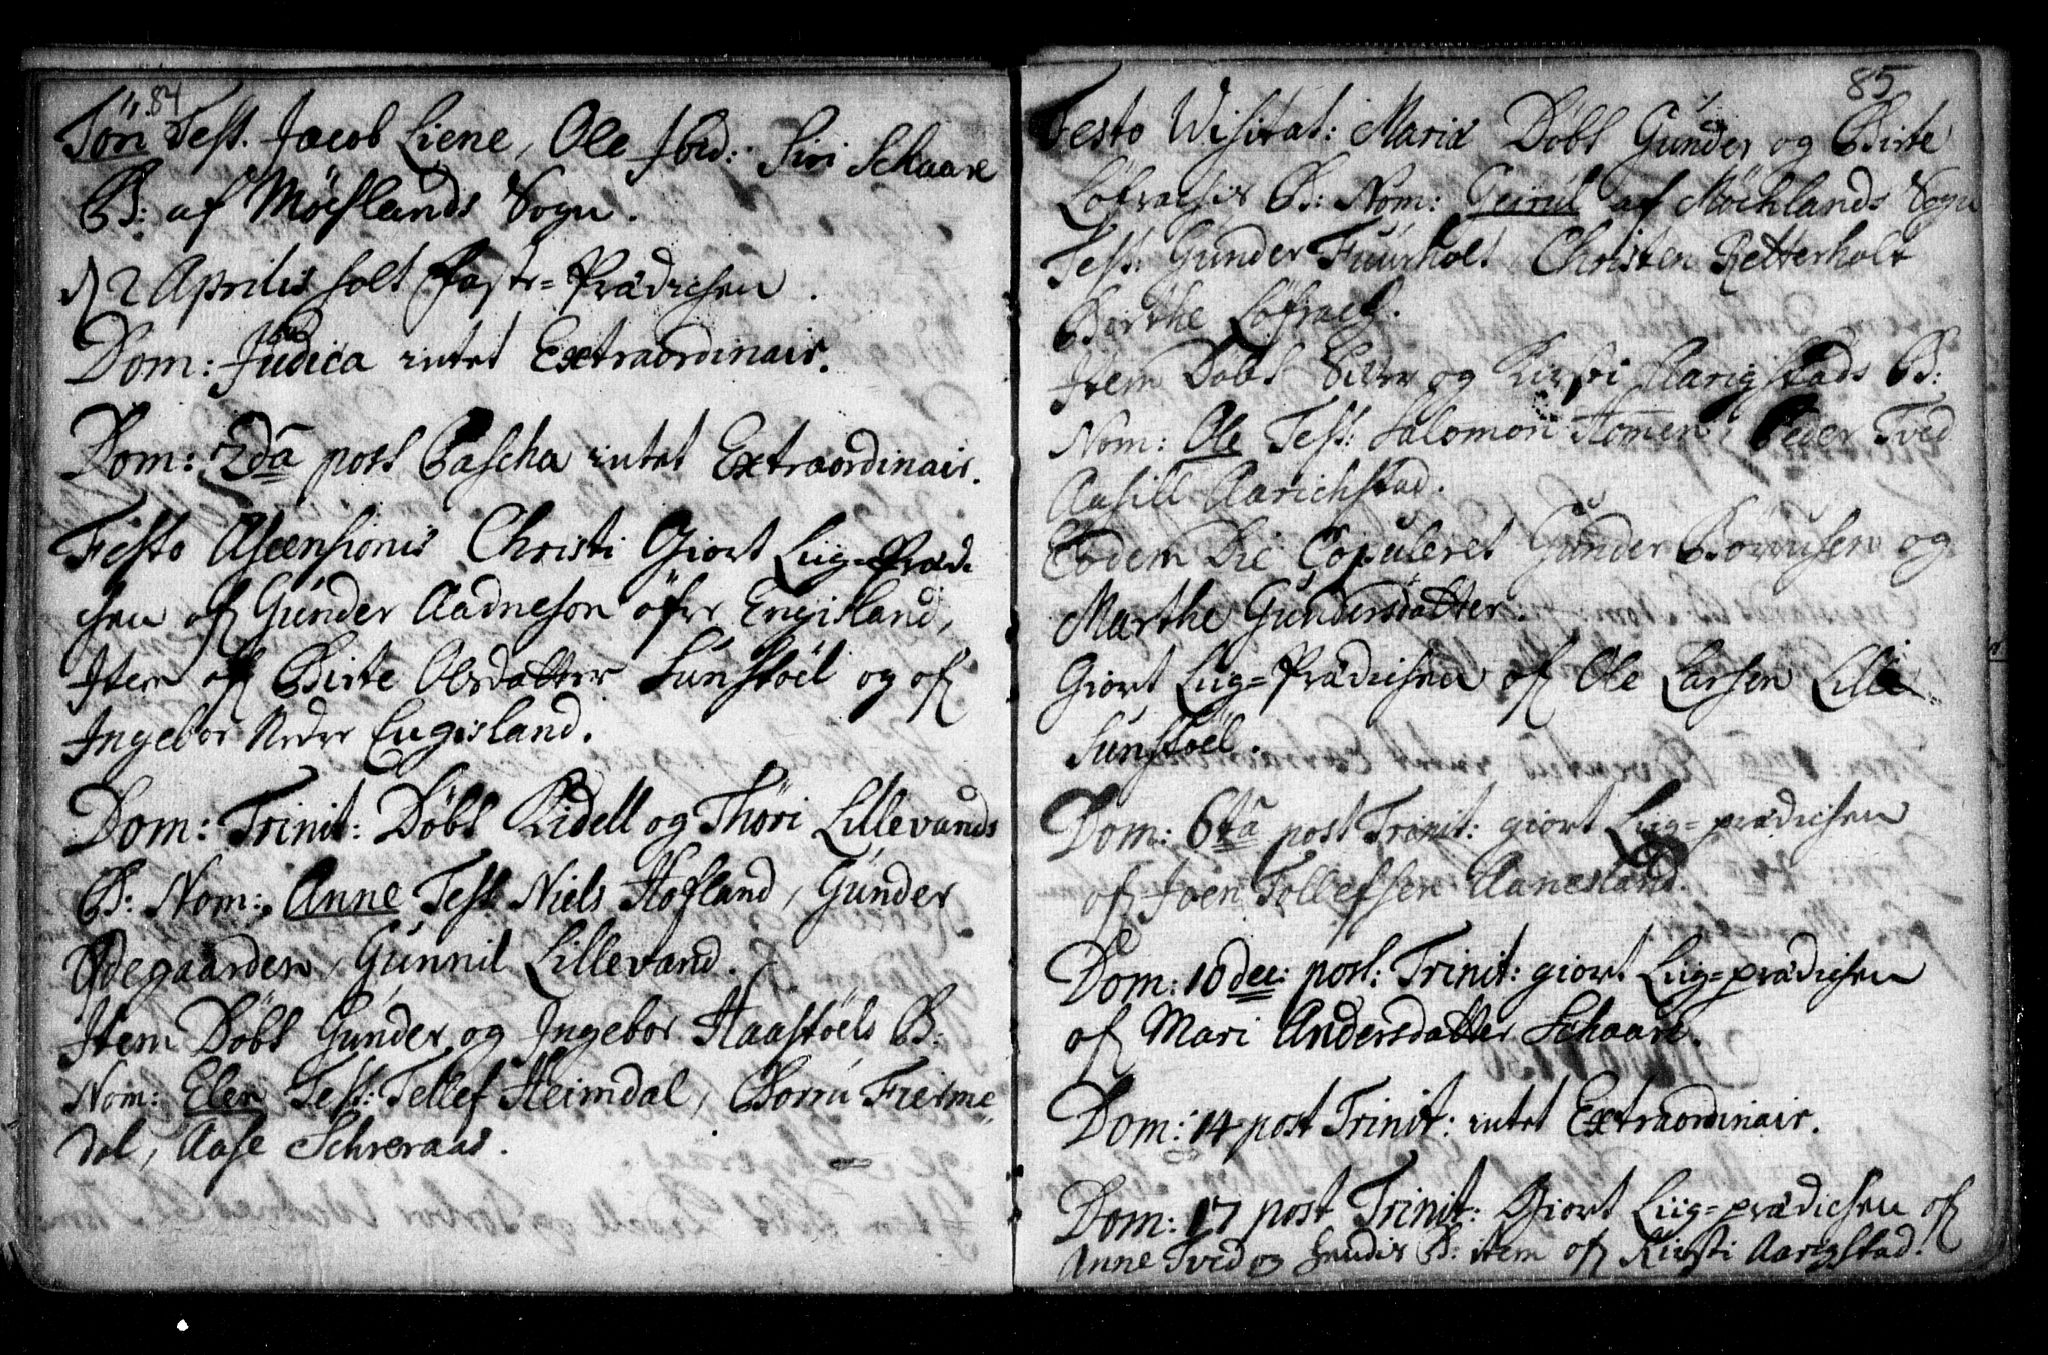 84
Töri Test. Jacob Liene, Ole Ibid: Siri Schaare
B: af Möchlands Sogn.
d 2 Aprilis holt Faste-Prædichen.
Dom: Judica intet Extraordinair.
Dom: 2da post Pascha intet Extraordinair.
Festo Ascensionis Christi Giort Liig-Prædi
chen of Gunder Aadneson öfre Engisland,
Item of Birte Olsdatter Sunstöel og of
Ingebor Neder Engisland.
Dom: Trinit: Döbt Kidell og Thöri Lillevands
B: Nom: Anne Test Niels Hofland, Gunder
Ödegaarden, Gunnil Lillevand.
Item Döbt Gunder og Ingebor Haastöels B:
Nom: Elen Test: Tellef Heimdal, Borru Freime
dal, Aase Schreraas.
85
Festo Visitat: Mariæ Döbt Gunder og Birte
Löfrachs B: Nom: af Möchlands Sogn
Test: Gunder Fuurholt Christen Retterholt
Berthe Löfrach.
Item Döbt Siver og Kirsti Aarigstads B:
Nom: Ole Test: Salomon Homen, Peder Tved
Aasill Aarichstad.
Eodem Die Copuleret Gunder Börrusen og
Marthe Gundersdatter.
Giort Liig-Prædichen of Ole Larsen Lille
Sunstöel.
Dom: 6ta post Trinit: giort Liig-prædichen
of Joen Tollefsen Aanesland.
Dom: 10dec: post: Trinit: giort Liig-prædichen
of Mari Andersdatter Schaare.
Dom: 14 post Trinit: intet Extraordinair.
Dom: 17 post Trinit: Giort Liig-prædichen of
Anne Tved og hendis B: item of Kirsti Aarigstad.